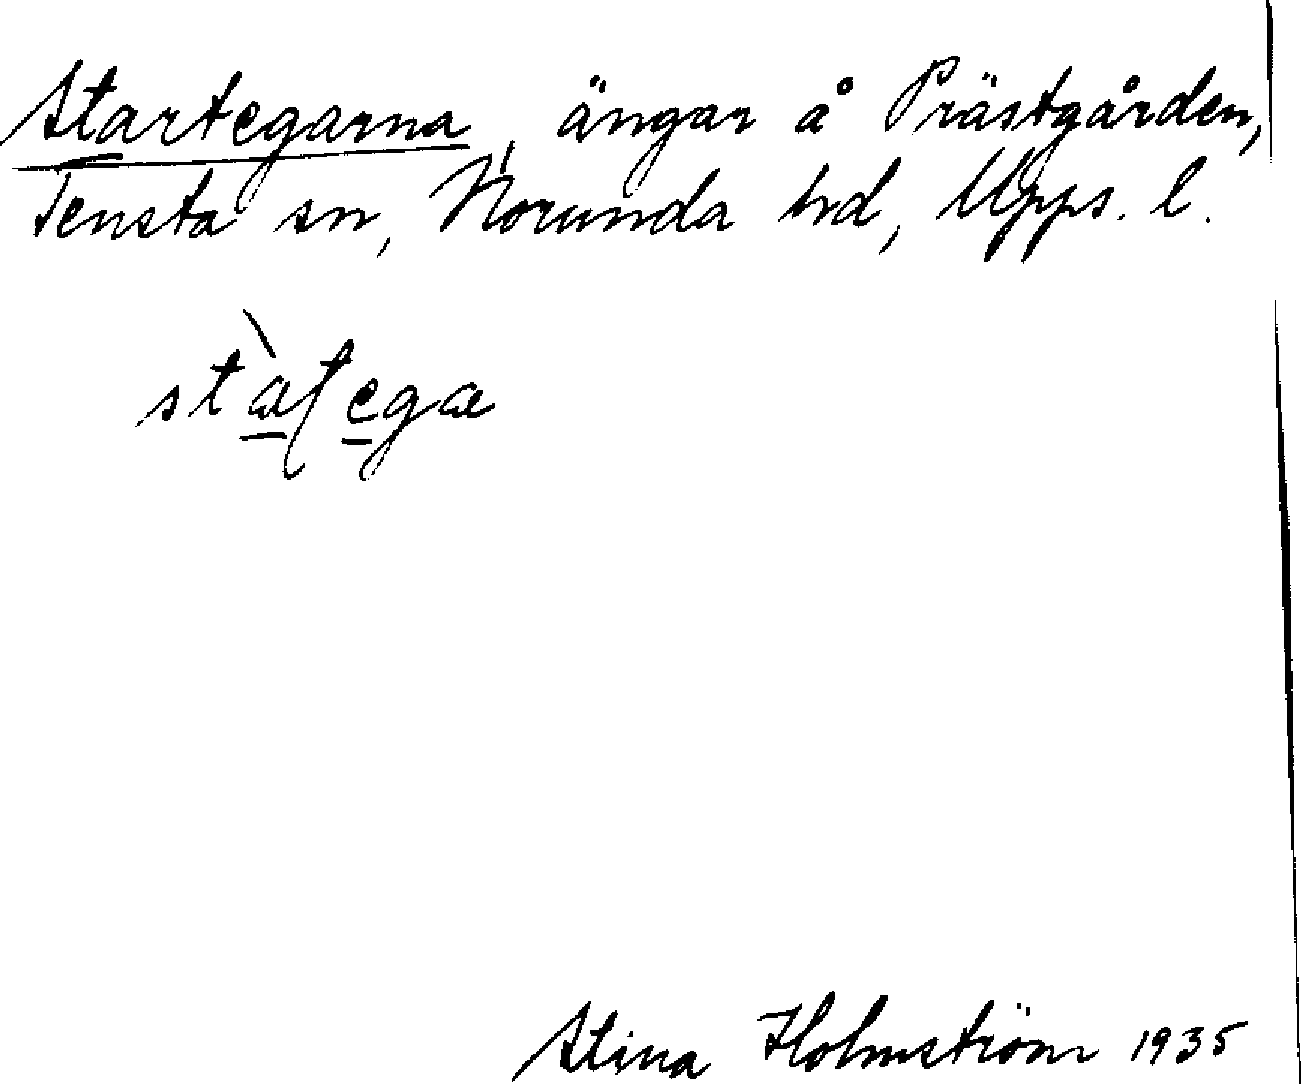 Startegarna, ängar å Prästgården,
Tensta sn, Norunda hd, Upps. l.
stàʈega
Stina Holmström 1935